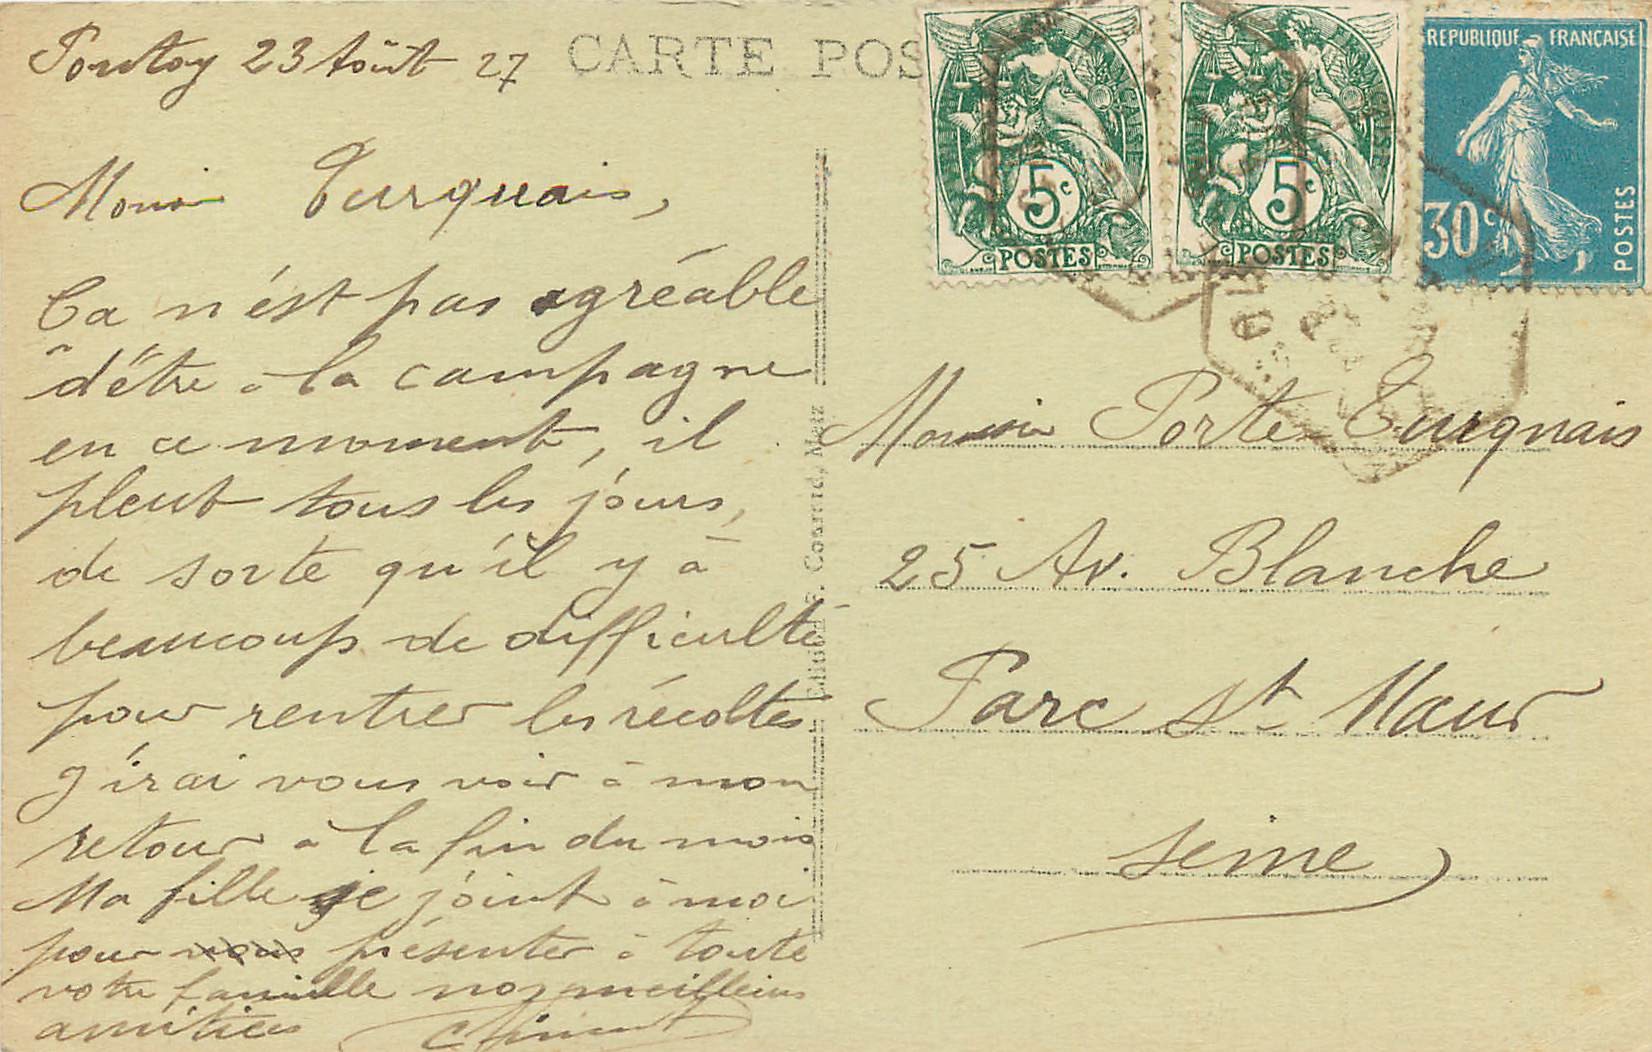 Pontoy 23 Août 27
CARTE POS
Monsi Turquais,
Ça n'ést pas agréable
d'être à la campagne
en ce moment, il
pleut tous les jours,
de sorte qu'il y à
beaucoup de difficulté
pour rentrer les récoltes
J'irai vous voir à mon
retour à la fin du mois
Ma fille se joint à moi
pour vous présenter à toute
votre famille nos meilleurs
amitiés
Edition Cosard, Metz
FRANÇAISE
5c
POSTES
FRANÇAISE
5c
POSTES
REPUBLIQUE FRANÇAISE
30c
POSTES
Monsieur Porte Turquais
25 Av. Blanche
Parc St Maur
Seine